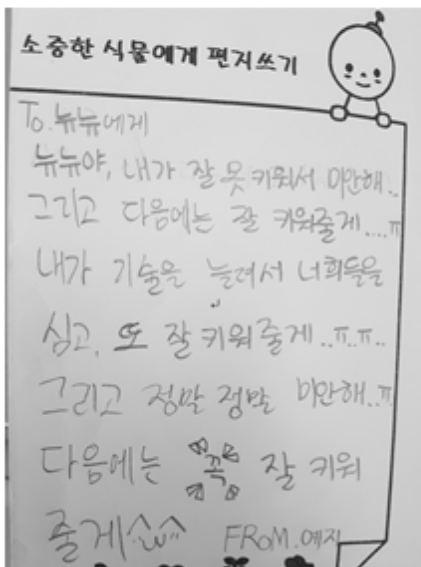 소중한 식물에게 편지쓰기
To.뉴뉴에게
뉴뉴야, 내가 잘 못 키워서 미안해..
그리고 다음에는 잘 키워줄게....ㅠ
내가 기술을 늘려서 너희들을
심고, 또 잘 키워줄게..ㅠ.ㅠ..
그리고 정말 정말 미안해..ㅠ
다음에는 꼭 잘 키워
줄게^ω^ FROM.예지